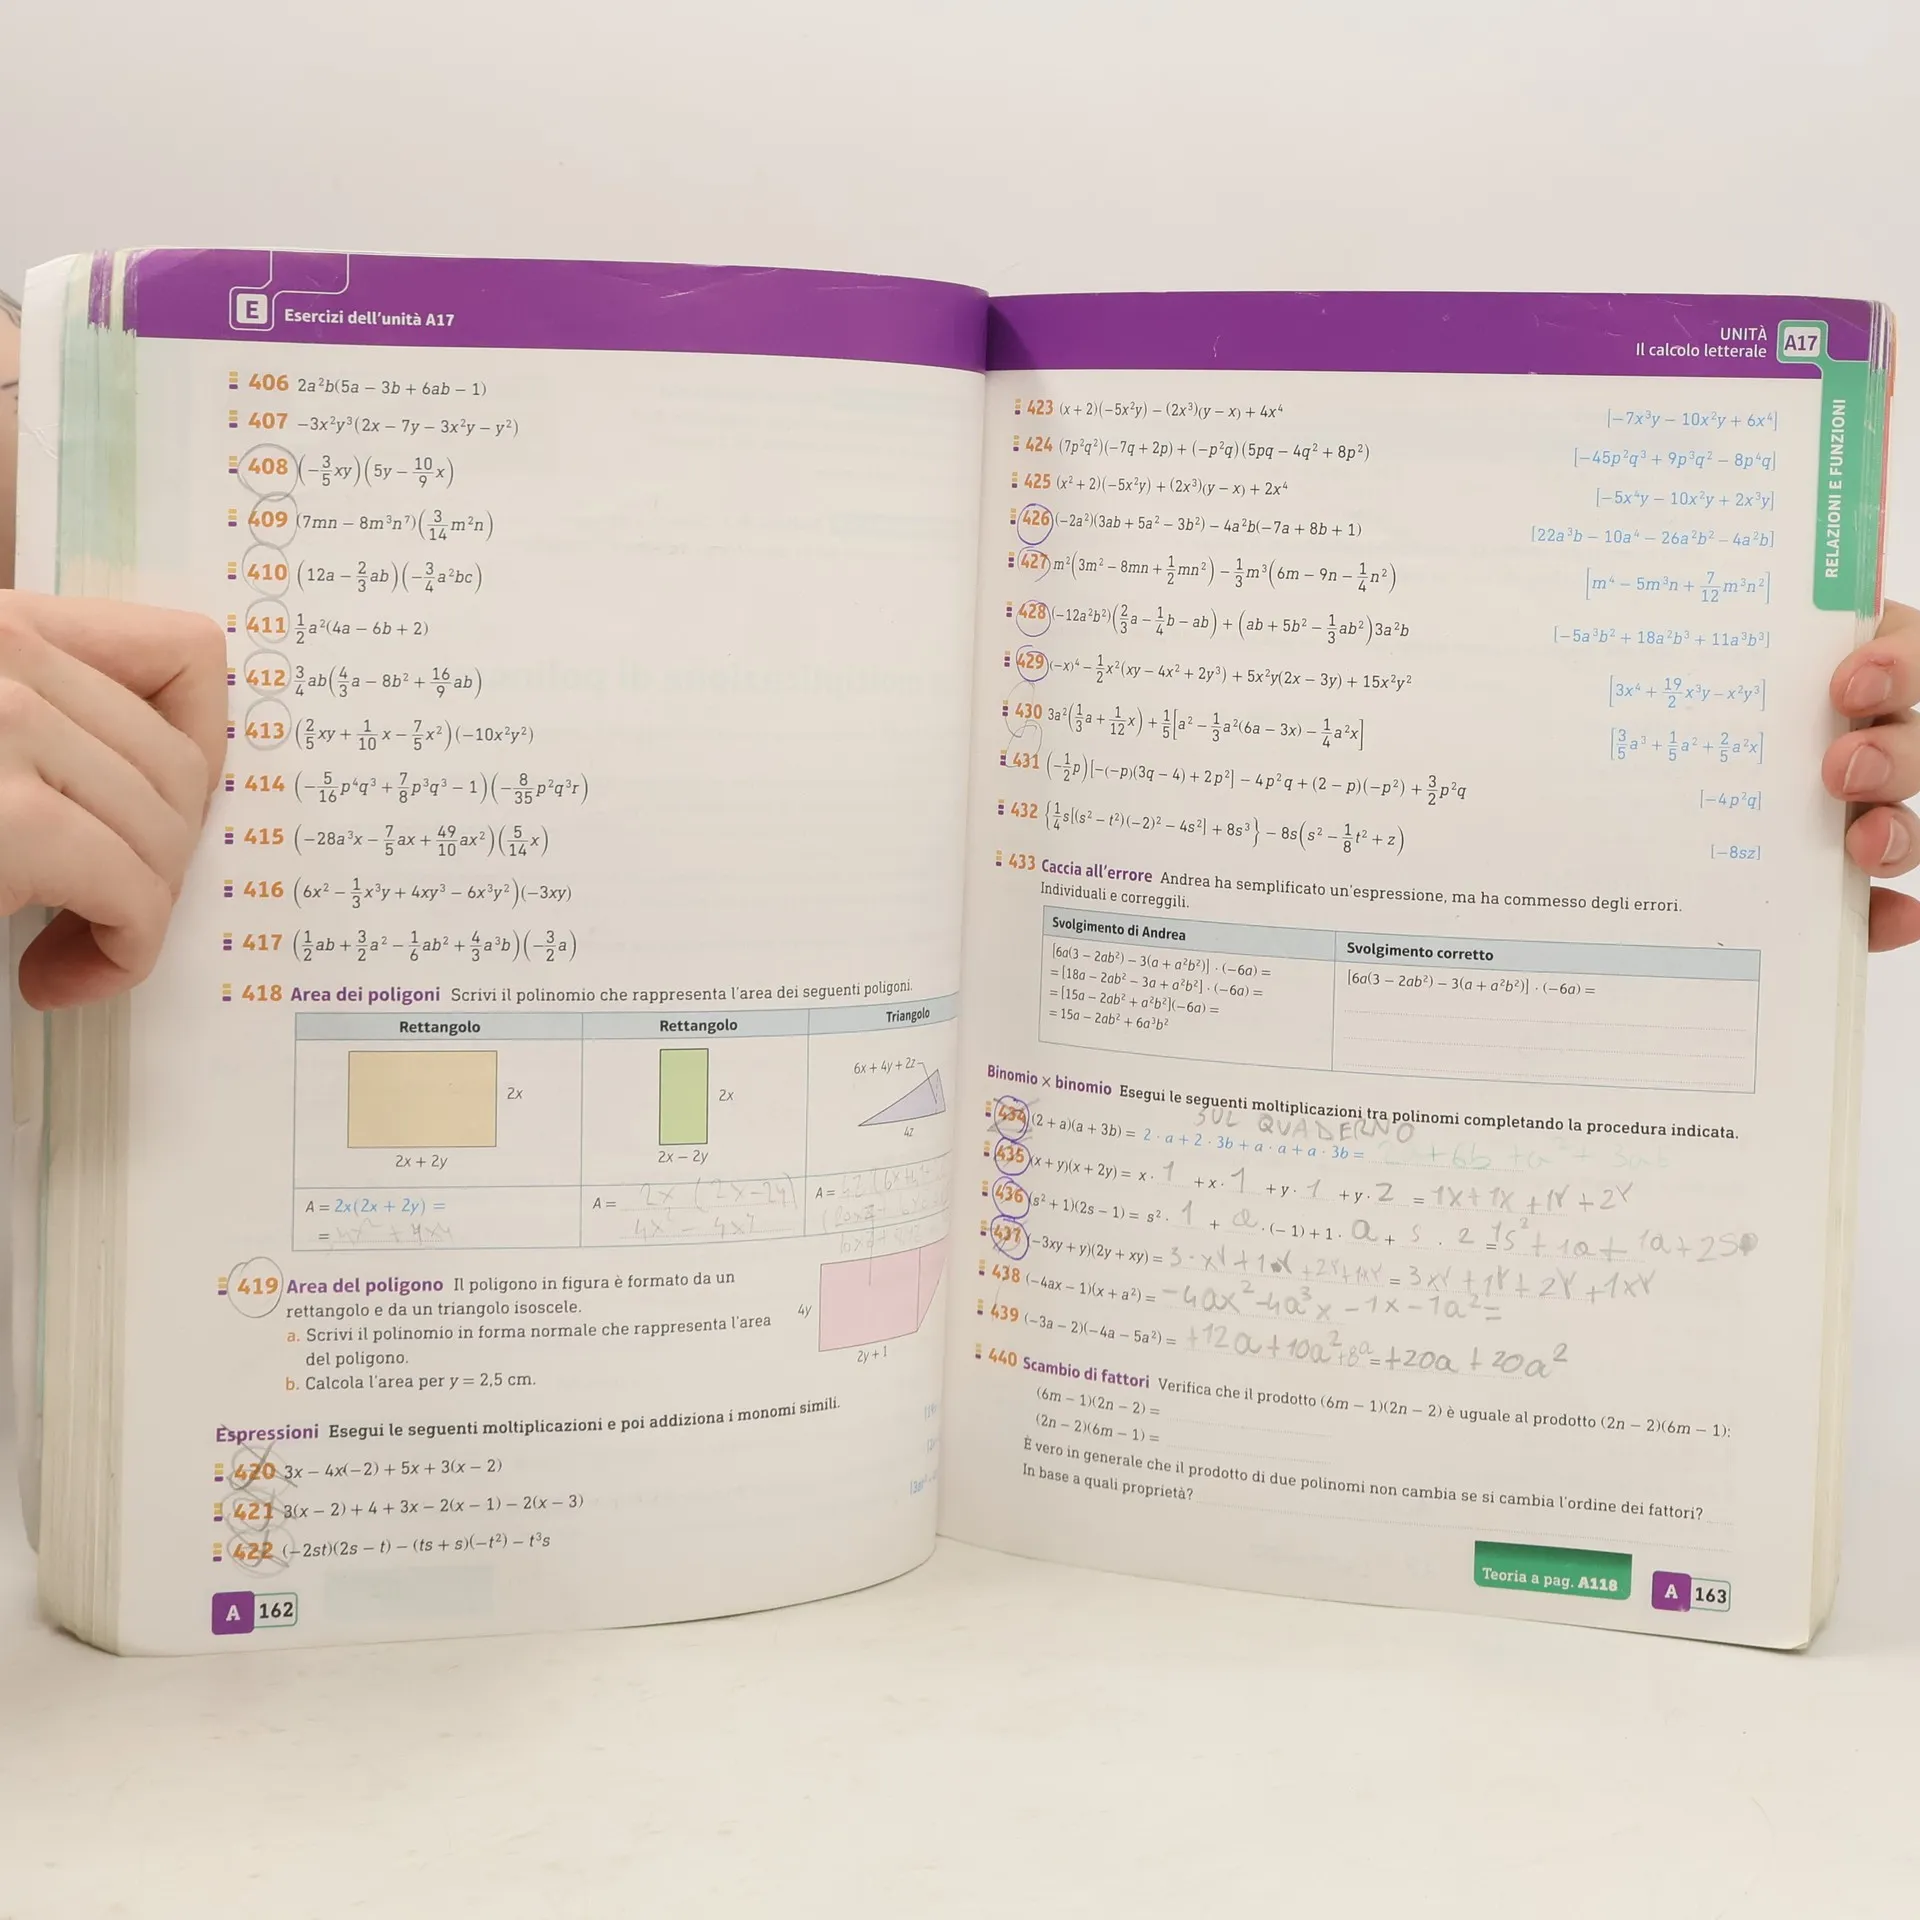 E Esercizi dell'unità A17
406 2a²b(5a – 3b + 6ab – 1)
407 –3x²y³(2x – 7y – 3x²y – y²)
408 (–3/5 xy)(5y – 10/9 x)
409 (7mn – 8m³n⁷)(3/14 m²n)
410 (12a – 2/3 ab)(–3/4 a²bc)
411 1/2 a²(4a – 6b + 2)
412 3/4 ab(4/3 a – 8b² + 16/9 ab)
413 (2/5 xy + 1/10 x – 7/5 x²)(–10x²y²)
414 (–5/16 p⁴q³ + 7/8 p³q³ – 1)(–8/35 p²q³r)
415 (–28a³x – 7/5 ax + 49/10 ax²)(5/14 x)
416 (6x² – 1/3 x³y + 4xy³ – 6x³y²)(–3xy)
417 (1/2 ab + 3/2 a² – 1/6 ab² + 4/3 a³b)(–3/2 a)
418 Area dei poligoni Scrivi il polinomio che rappresenta l'area dei seguenti poligoni.
Rettangolo Rettangolo Triangolo
6x + 4y + 2z
2x 2x
4z
2x + 2y 2x – 2y
A = 2x(2x + 2y) = A = 2x (2x-2y) A =
= 4x² + 4xy 4x² - 4xy
419 Area del poligono Il poligono in figura è formato da un
rettangolo e da un triangolo isoscele.
a. Scrivi il polinomio in forma normale che rappresenta l'area
del poligono.
b. Calcola l'area per y = 2,5 cm.
4y
2y + 1
Espressioni Esegui le seguenti moltiplicazioni e poi addiziona i monomi simili.
420 3x – 4x(–2) + 5x + 3(x – 2)
421 3(x – 2) + 4 + 3x – 2(x – 1) – 2(x – 3)
422 (–2st)(2s – t) – (ts + s)(–t²) – t³s
A 162
UNITÀ
Il calcolo letterale A17
RELAZIONI E FUNZIONI
423 (x + 2)(–5x²y) – (2x³)(y – x) + 4x⁴ [–7x³y – 10x²y + 6x⁴]
424 (7p²q²)(–7q + 2p) + (–p²q)(5pq – 4q² + 8p²) [–45p²q³ + 9p³q² – 8p⁴q]
425 (x² + 2)(–5x²y) + (2x³)(y – x) + 2x⁴ [–5x⁴y – 10x²y + 2x³y]
426 (–2a²)(3ab + 5a² – 3b²) – 4a²b(–7a + 8b + 1) [22a³b – 10a⁴ – 26a²b² – 4a²b]
427 m²(3m² – 8mn + 1/2 mn²) – 1/3 m³(6m – 9n – 1/4 n²) [m⁴ – 5m³n + 7/12 m³n²]
428 (–12a²b²)(2/3 a – 1/4 b – ab) + (ab + 5b² – 1/3 ab²)3a²b [–5a³b² + 18a²b³ + 11a³b³]
429 (–x)⁴ – 1/2 x²(xy – 4x² + 2y³) + 5x²y(2x – 3y) + 15x²y² [3x⁴ + 19/2 x³y – x²y³]
430 3a²(1/3 a + 1/12 x) + 1/5[a² – 1/3 a²(6a – 3x) – 1/4 a²x] [3/5 a³ + 1/5 a² + 2/5 a²x]
431 (–1/2 p)[–(–p)(3q – 4) + 2p²] – 4p²q + (2 – p)(–p²) + 3/2 p²q [–4p²q]
432 {1/4 s[(s² – t²)(–2)² – 4s²] + 8s³} – 8s(s² – 1/8 t² + z) [–8sz]
433 Caccia all'errore Andrea ha semplificato un'espressione, ma ha commesso degli errori.
Individuali e correggili.
Svolgimento di Andrea Svolgimento corretto
[6a(3 – 2ab²) – 3(a + a²b²)] · (–6a) = [6a(3 – 2ab²) – 3(a + a²b²)] · (–6a) =
= [18a – 2ab² – 3a + a²b²] · (–6a) =
= [15a – 2ab² + a²b²](–6a) =
= 15a – 2ab² + 6a³b²
Binomio × binomio Esegui le seguenti moltiplicazioni tra polinomi completando la procedura indicata.
SUL QUADERNO
434 (2 + a)(a + 3b) = 2 · a + 2 · 3b + a · a + a · 3b = + 6b + a² +
435 (x + y)(x + 2y) = x · 1 + x · 1 + y · 1 + y · 2 = 1x + 1x + 1y + 2y
436 (s² + 1)(2s – 1) = s² · 1 + a · (–1) + 1 · a + s · 2 = 1s² + 1a + 1a + 2s
437 (–3xy + y)(2y + xy) = 3xy + 1y + 2y + 1xy
438 (–4ax – 1)(x + a²) = -4ax² -4a³x -1x -1a² =
439 (–3a – 2)(–4a – 5a²) = +12a + 10a² +8a = +20a + 20a²
440 Scambio di fattori Verifica che il prodotto (6m – 1)(2n – 2) è uguale al prodotto (2n – 2)(6m – 1):
(6m – 1)(2n – 2) =
(2n – 2)(6m – 1) =
È vero in generale che il prodotto di due polinomi non cambia se si cambia l'ordine dei fattori?
In base a quali proprietà?
Teoria a pag. A118
A 163